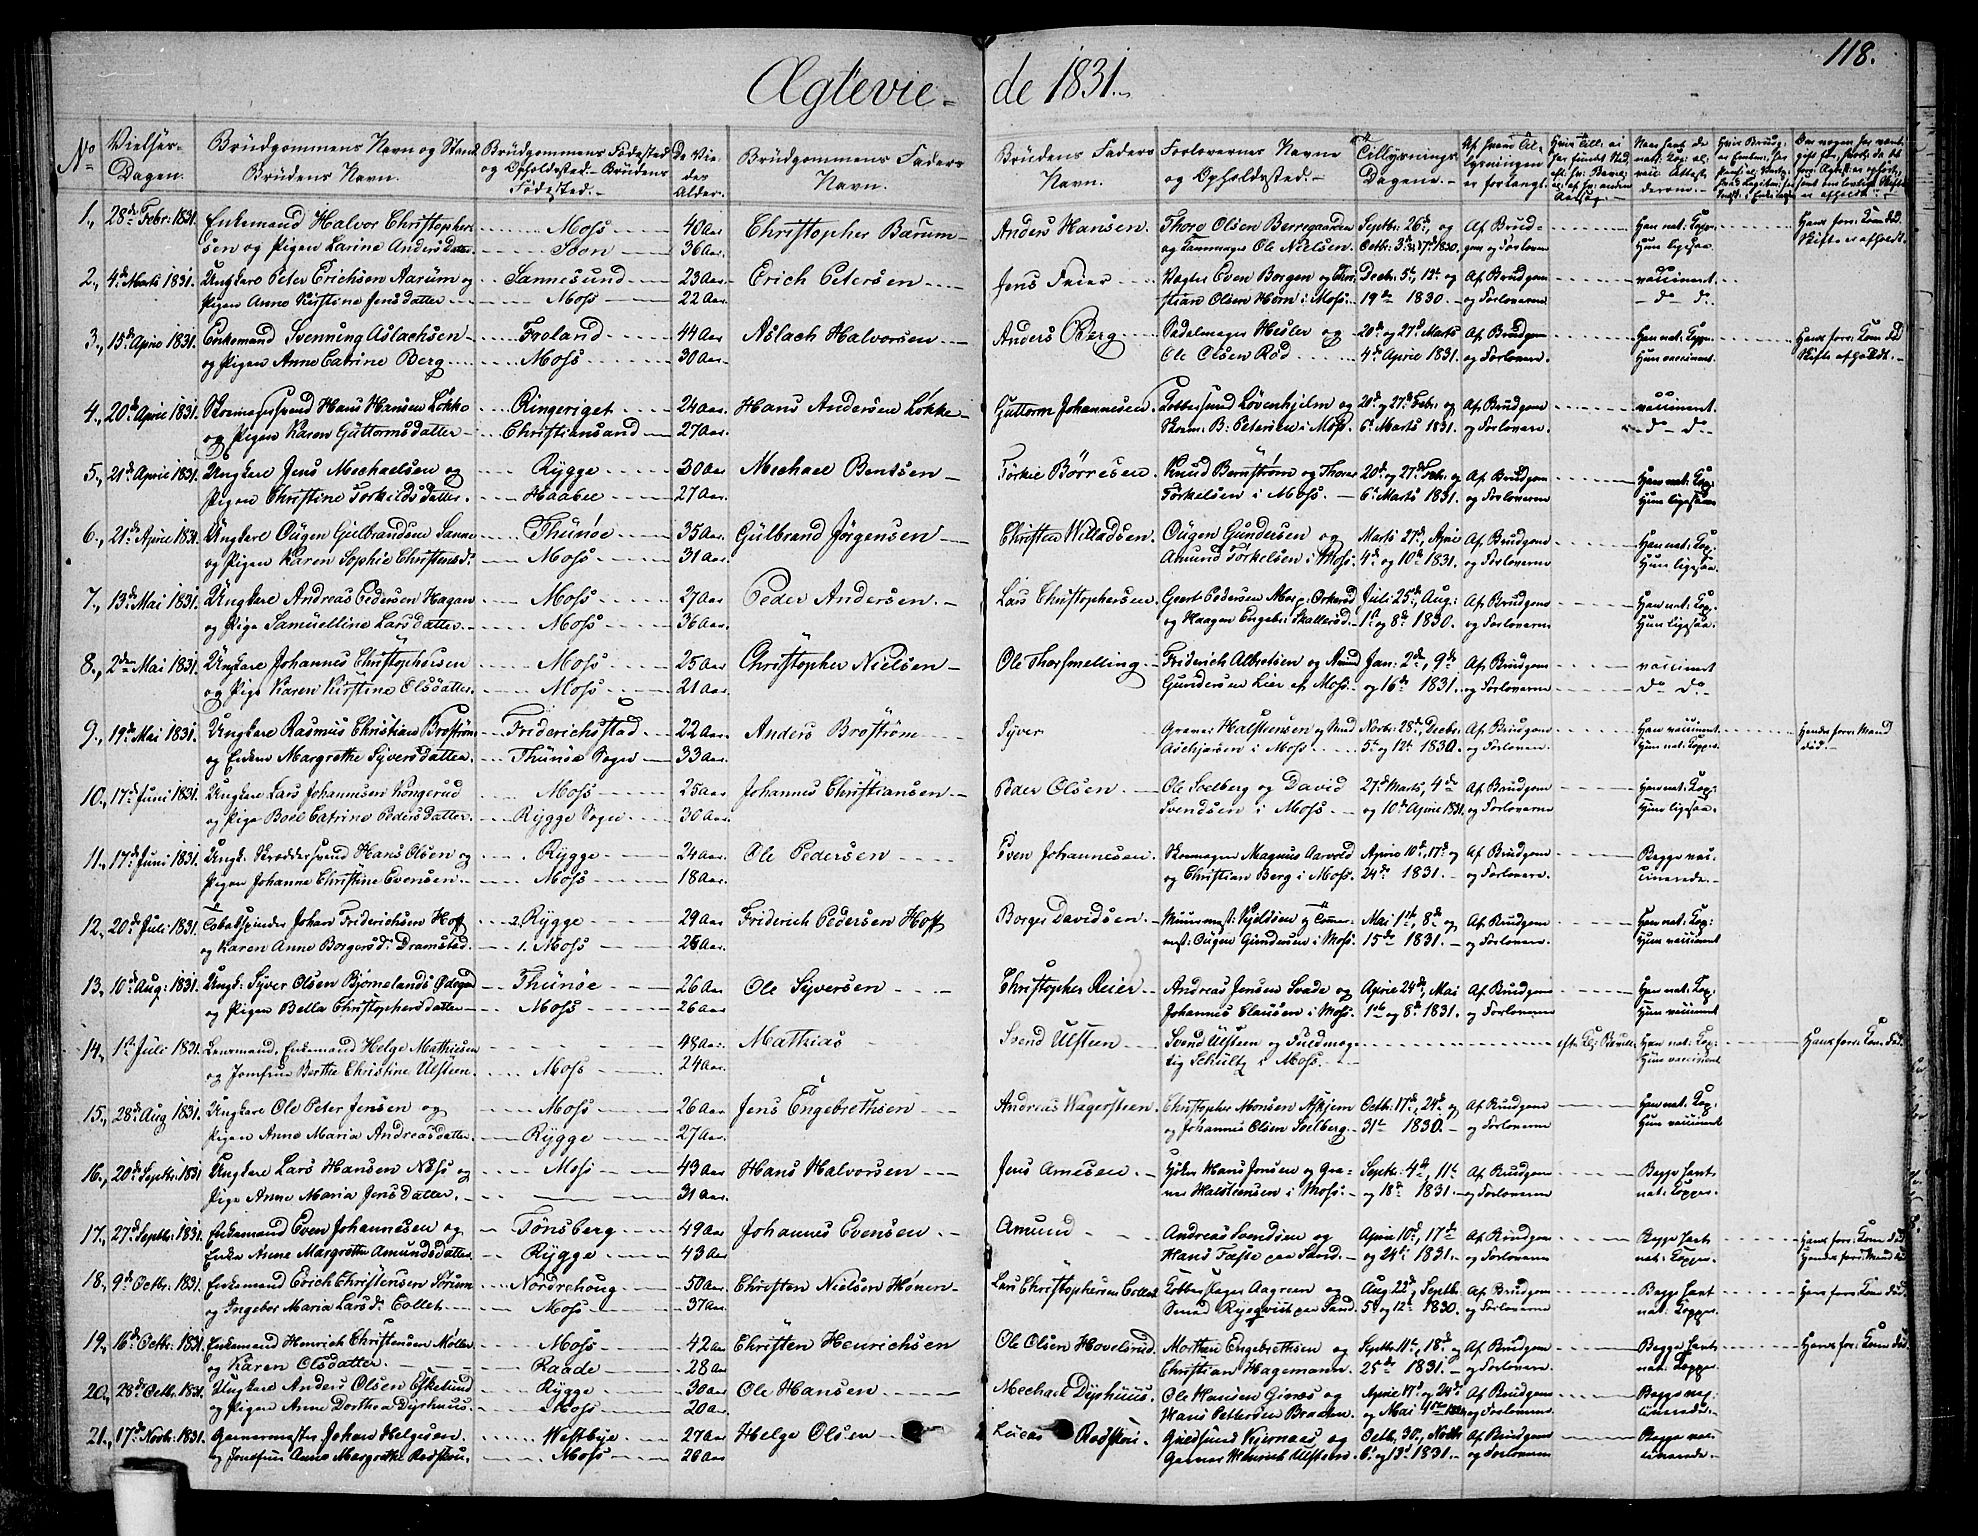 118.
Ægtevie- de 1831.
No Vielses-Dagen. Brüdgommens Navn og Stand Brüdens Navn. Brüdgommens Fødested og Opholdsted.- Brüdens Fødested.- De Viedes Alder. Brüdgommens Faders Navn. Brüdens Faders Navn. Forlovernes Navne og Opholdsted.- Tillysnings Dagene.
1., 28de Febr: 1831. Enkemand Halvor Christopher- Moss 40 Aar Christopher Bærum Anders Hansen Thore Olsen Berregaarden Septbr: 26de, og Af Brud- Han nat: Kopp: Hans forr: Kone død
sen og Pigen Larine Andersdatter Soon 36 Aar og Ole Nielsen Octbr: 3de 17de 1830. gom og Forlovere Hun ligesaa. Skifte er afholdt.
2., 4de Marts 1831. Ungkarl Peter Erichsen Aarum og Sannesund 23 Aar Erich Petersen Jens Feier Even Borgen og Chri- Decbr: 5te, 12te og Af Brudgom vaccineret
Pigen Anne Kirstine Jensdatter Moss 22 Aar stian Olsen Horn i Moss. 19de 1830. og Forlovere do do
3., 15de April 1831. Enkemand Svenning Aslachsen Froland 44 Aar Aslach Halvorsen Anders Berg Sadelmager Hesler og 20de og 27de Marts Af Brudgom Han nat: Kopp: Hans forr: Kone død
og Pigen Anne Catrine Berg Moss 30 Aar Ole Olsen Rød 4de April 1831. og Forlovere Hun vaccineret. Skifte afholdt.
4., 20de April 1831. Hans Hansen Løkke Ringeriget 24 Aar Hans Andersen Løkke Guttorm Johannesen Løvenhjelm og 20de og 27de Febr: og Af Brudgom vaccineret.
og Pigen Karen Güttormsdatter Christiansand 27 Aar B: Petersen i Moss. 6te Marts 1831. og Forlovere do do
5., 21de April 1831. Ungkarl Jens Mechaelsen og Rygge 30 Aar Mechael Bentsen Torkel Børresen Knud Bernstrøm og Thorer 20de og 27de Febr: og Af Brudgom Han nat: Kop:
Pigen Christine Torkildsdatter Haabøe 27 Aar Torkelsen i Moss. 6te Marts 1831. og Forlovere Hun ligesaa
6., 21de April 1831. Ungkarl Ougen Gulbrandsen Sanne Thunøe 35 Aar Gülbrand Jørgensen Christen Willadsen Ougen Gundersen og Marts 27de, April Af Brudgom Han nat: Kop:
og Pigen Karen Sophie Christensd: Moss 31 Aar Amund Torkelsen i Moss. 4de og 10de 1831. og Forlovere Hun ligesaa
7., 13de Mai 1831. Ungkarl Andreas Pedersen Hagan Moss 27 Aar Peder Andersen Lars Christophersen Geert Pedersen Orkerød Juli 25de, Aug: Af Brudgom Han nat: Kop:
og Pige Samuelline Larsdatter Moss 36 Aar og Haagen Engebr: Skallerød 1ste og 8de 1830. og Forlovere Hun ligesaa.
8., 2den Mai 1831. Ungkarl Johannes Christophersen Moss 25 Aar Christopher Nielsen Ole Thorsmelling Friderich Albretsen og Amund Jan: 2den, 9de Af Brudgom vaccineret
og Pige Karen Kirstine Olsdatter Moss 21 Aar Gundersen Lier af Moss og 16de 1831. og Forlovere do do
9., 19de Mai 1831. Ungkarl Rasmus Christian Brostrøm Friderichsstad 22 Aar Anders Brostrøm Syver Halstensen og Novbr: 28de, Decbr: Af Brudgom Han vaccineret Hendes forr: Mand
og Enken Margrethe Syversdatter Thunøe Sogn 33 Aar i Moss 5te og 12te 1830. og Forlovere Hun nat: Kopper død
10., 17de Juni 1831. Ungkarl Lars Johannesen Kongerud Moss 25 Aar Johannes Christiansen Peder Olsen Ole Soelberg og David 27de Marts, 4de Af Brudgom Han nat: Kop:
og Pige Boel Catrine Pedersdatter Rygge Sogn 30 Aar Svendsen i Moss og 10de April 1831. og Forlovere Hun ligesaa.
11., 17de Juni 1831. Ungk: Skræddersvend Hans Olsen og Rygge 24 Aar Ole Pedersen Even Johannesen Skomager Magnus Aarvold April 10de, 17de og Af Brudgom Begge vac-
Pigen Johanne Christine Evensen Moss 18 Aar og Christian Berg i Moss 24de 1831. og Forlovere cinerede.
12., 20de Juli 1831. Tobakspinder Johan Friderichsen Hoff 2. Rygge 29 Aar Friderich Pedersen Hoff Borger Davidsen Muurmest: Kjeldsen og Tømmer- Mai 1ste, 8de og Af Brudgom Han nat: Kop:
og Karen Anne Borgersd: Dramstad 1. Moss 26 Aar mest: Ougen Gundersen i Moss. 15de 1831. og Forlovere Hun vaccineret
13., 10de Aug: 1831. Ungk: Syver Olsen Bjørnelands Ødegaard Thunøe 26 Aar Ole Syversen Christopher Reier Andreas Jensen Svade og April 24de, Mai Af Brudgom Han nat: Kop:
og Pigen Bella Christophersdatter Moss 26 Aar Johannes Clausen i Moss. 1ste og 8de 1831. og Forlovere Hun vaccineret
14., 1ste Juli 1831. Lensmand, Enkemand Helge Mathiesen 48 Aar Mathias Svend Ulsteen Svend Ulsteen og Fuldmæg- Han nat: Kop: Hans forr: Kone død
og Jomfrue Berthe Christine Ulsteen Moss 24 Aar tig Schultz i Moss. Hun vaccineret
15., 28de Aug 1831. Ungkarl Ole Peter Jensen og Moss 26 Aar Jens Engebrethsen Andreas Wagersteen Christopher Monsen Askjem Octbr: 17de, 24de og Af Brudgom Han nat: Kop:
Pigen Anne Maria Andreasdatter Rygge 27 Aar og Johannes Olsen Soelberg 31te 1830. og Forlovere Hun vaccineret
16., 20de Septbr: 1831 Ungkarl Lars Hansen Næss og Moss 43 Aar Hans Halvorsen Jens Arnesen Hans Jensen og Gre- Septbr: 4de, 11te Af Brudgom Begge havt
Pige Anne Maria Jensdatter 31 Aar Halsteensen i Moss og 18de 1831. og Forlovere nat: Kopper.
17., 27de Septbr: 1831. Enkemand Even Johannesen og Tønsberg 49 Aar Johannes Evensen Amund Andreas Svendsen og April 10de, 17de Af Brudgom Begge havt Hans forr: Kone død
Enke Anne Margrethe Amundsdatter Rygge 43 Aar Hans paa Sand. og 24de 1831. og Forlovere nat: Kopper. Hendes forr: Mand død
18., 9de Octbr: 1831. Enkemand Erich Christensen Sørum Nordrehoug 50 Aar Christen Nielsen Hønen Lars Christophersen Collet Aagreen og Aug 22de, Septbr: Af Brudgom Begge havt Hans forr: Kone død
og Ingebor Maria Larsd: Collet Moss 37 Aar Svend paa Sand 5te og 12te 1830. og Forlovere nat: Kopper
19., 16de Octbr: 1831. Enkemand Henrich Christensen Møller Moss 42 Aar Christen Henrichsen Ole Olsen Hovelsrud Morthen Engebrethsen og Septbr 11te, 18de og Af Brudgom Begge havt Hans forr: Kone død
og Karen Olsdatter Raade 28 Aar Christian Hagemann 25de 1831. og Forlovere nat: Kopper
20., 28de Octbr: 1831. Ungkarl Anders Olsen Eskelund Rygge 30 Aar Ole Hansen Mechael Dyphuus Ole Hansen og April 17de og 24de Af Brudgom Begge vac-
og Pigen Anne Dorthea Dyphuus Moss 20 Aar Hans Pettersen Braaten og Mai og Forlovere cinerede.
21., 17de Novbr: 1831. Garvermester Johan Helgesen Westbye 27 Aar Helge Olsen Lucas Guldsmed Kjernaas og Octbr: 30, Novbr: Af Brudgom Begge vac-
og Jomfrue Anne Margrethe Moss 26 Aar Garver Henrich Ulsteen 6te og 13de 1831. og Forlovere cinerede.